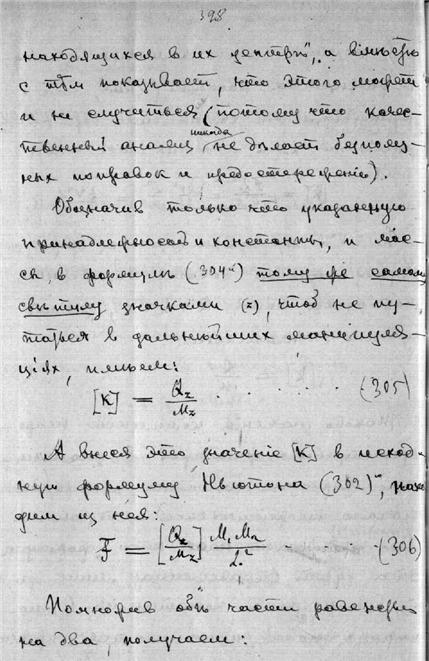 398
находящихся в их центрѣ", а вмѣстѣ
с тѣм показывает, что этого может
и не случиться (потому что качес-
твенный анализ никогда не дѣлает безполез-
ных поправок и предостережений).
Обозначив только что указанную
принадлежность и константы, и мас-
сы, в формулѣ (304") тому же самому
свѣтилу значками (z), чтоб не пу-
таться в дальнѣйших манипуля-
ціях, имѣем:
[K] = Qz/Mz . . . . . . (305)
А внеся это значеніе [K] в исход-
ную формулу Ньютона (302)", нахо-
дим из нея:
F = [Qz/Mz] M₁M₂/L² . . . . (306)
Помножив обѣ части равенства
на два, получаем: